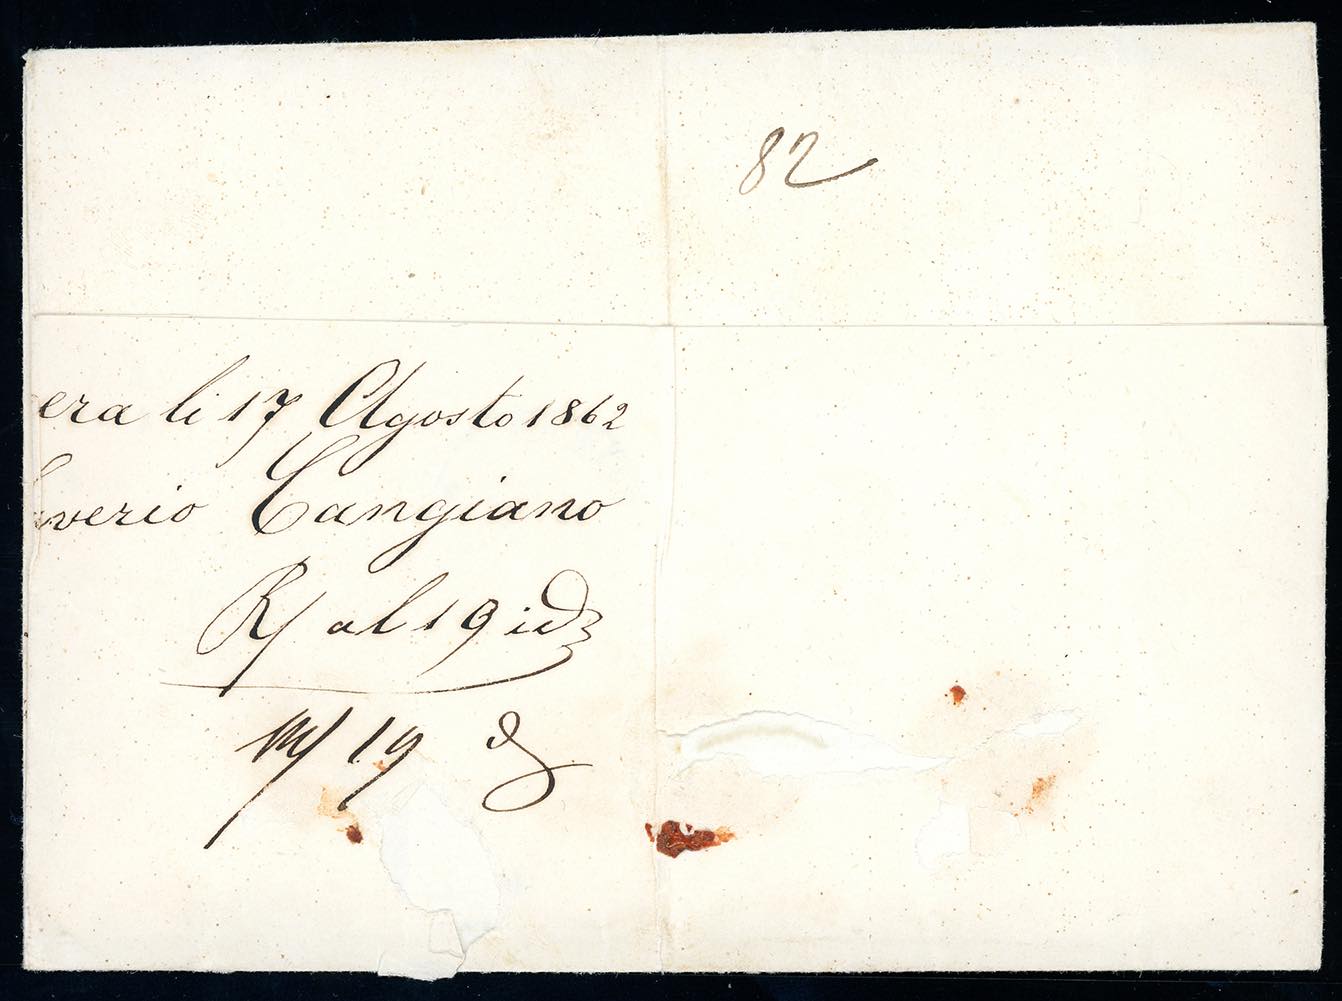 82
era li 17 Agosto 1862
verio Cangiano
R/ al 19 id
19